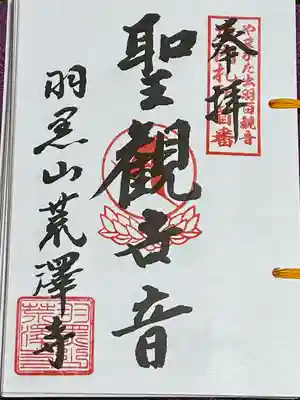 奉拝
やまがた出羽百観音
聖観世音
羽黒山荒澤寺